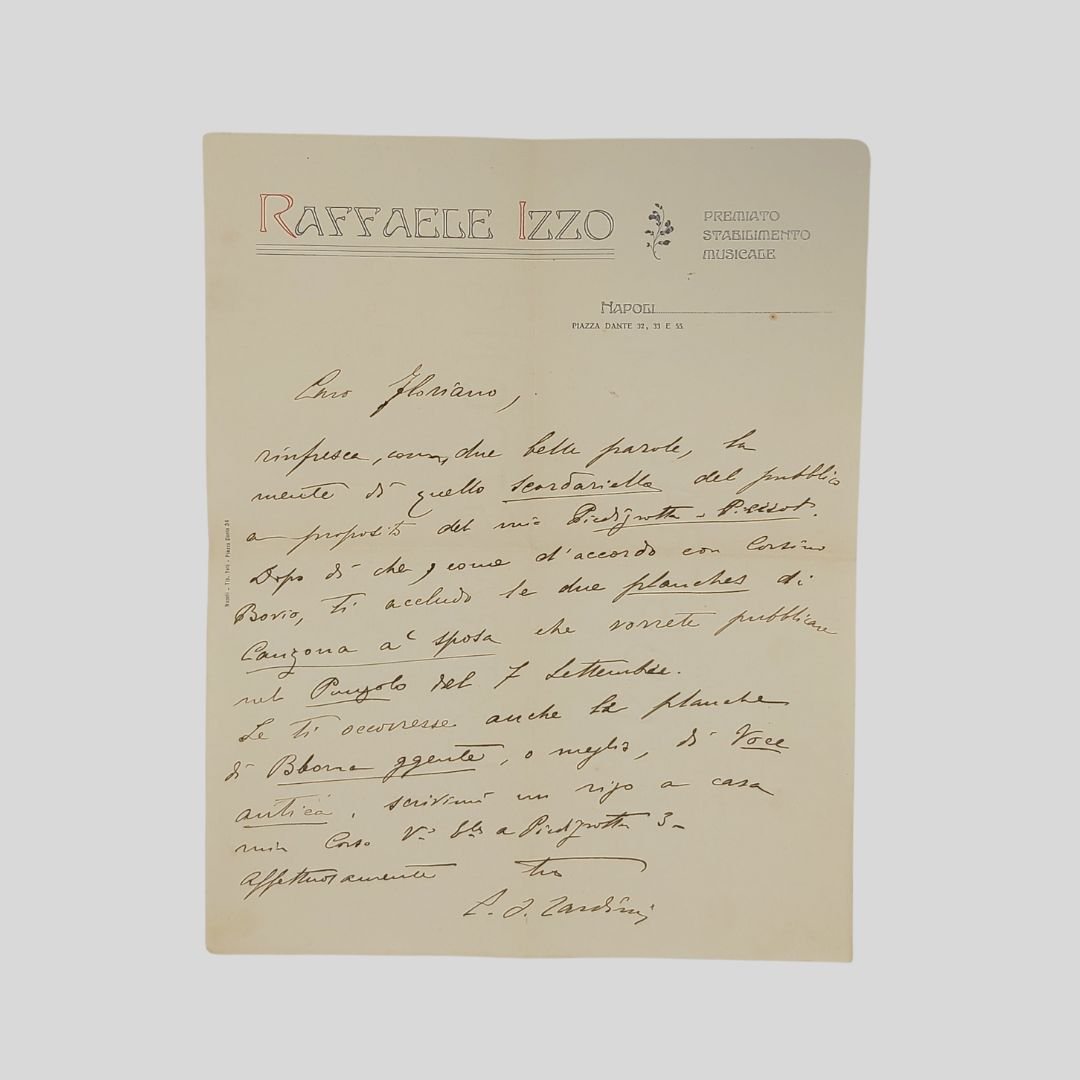 RAFFAELE IZZO
PREMIATO
STABILIMENTO
MUSICALE
NAPOLI
PIAZZA DANTE 32, 33 E 55
Caro Floriano,
rinfresca, con due belle parole, la
mente di quello scordariello del pubblico
a proposito del mio Piedigrotta
Dopo di che, come d'accordo con Corsino
Bovio, ti accludo le due planches di
Canzona a' sposa che vorrete pubblicare
nel Pungolo del 7 Settembre.
Se ti occorresse anche la planche
di Bbona ggente, o meglio, di Voce
antica, scrivimi un rigo a casa
mia Corso V. Ele a Piedigrotta 3-
Affettuosamente tuo